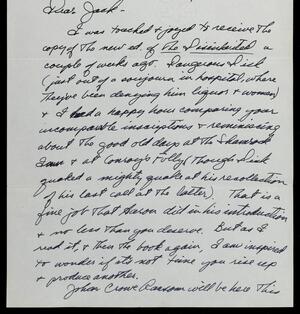 Dear Jack -
I was touched & joyed to receive the
copy of the new ed. of The Disinherited a
couple of weeks ago. Dangerous Dick
(just out of a sojourn in hospital, where
they've been denying him liquor & women)
& I had a happy hour comparing your
incomparable inscriptions & reminiscing
about the good old days at the Shamrock
Inn & at Conroy's Folly (though Dick
quaked a mighty quake at his recollection
of his last call at the latter). That is a
fine job that Aaron did in his introduction
& no less than you deserve. But as I
read it, & then the book again, I am inspired
to wonder if it's not time you rise up
& produce another.
John Crowe Ransom will be here this